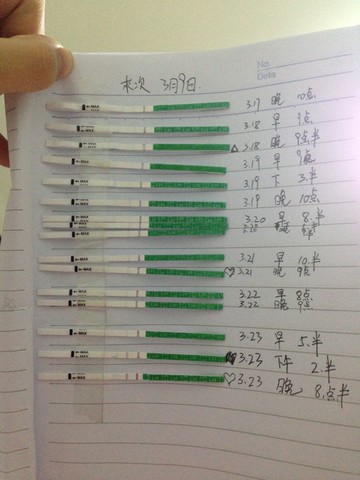 No.
Date
末次 3月9日.
3.17 晚 10点
3.18 早 9点
△ 3.18 晚 9点半
3.19 早 9点
3.19 下 3.半
3.19 晚 10点
3.20 早 8.半
3.20
3.21 早 10.半
♡ 3.21 晚 9点
3.22 早 8点
3.22 晚 9点
3.23 早 5.半
♥ 3.23 下午 2.半
♡ 3.23 晚 8.点半